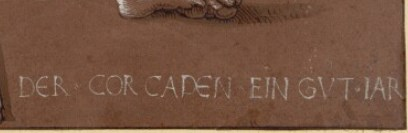 DER · COR CAPEN · EIN GVT · IAR